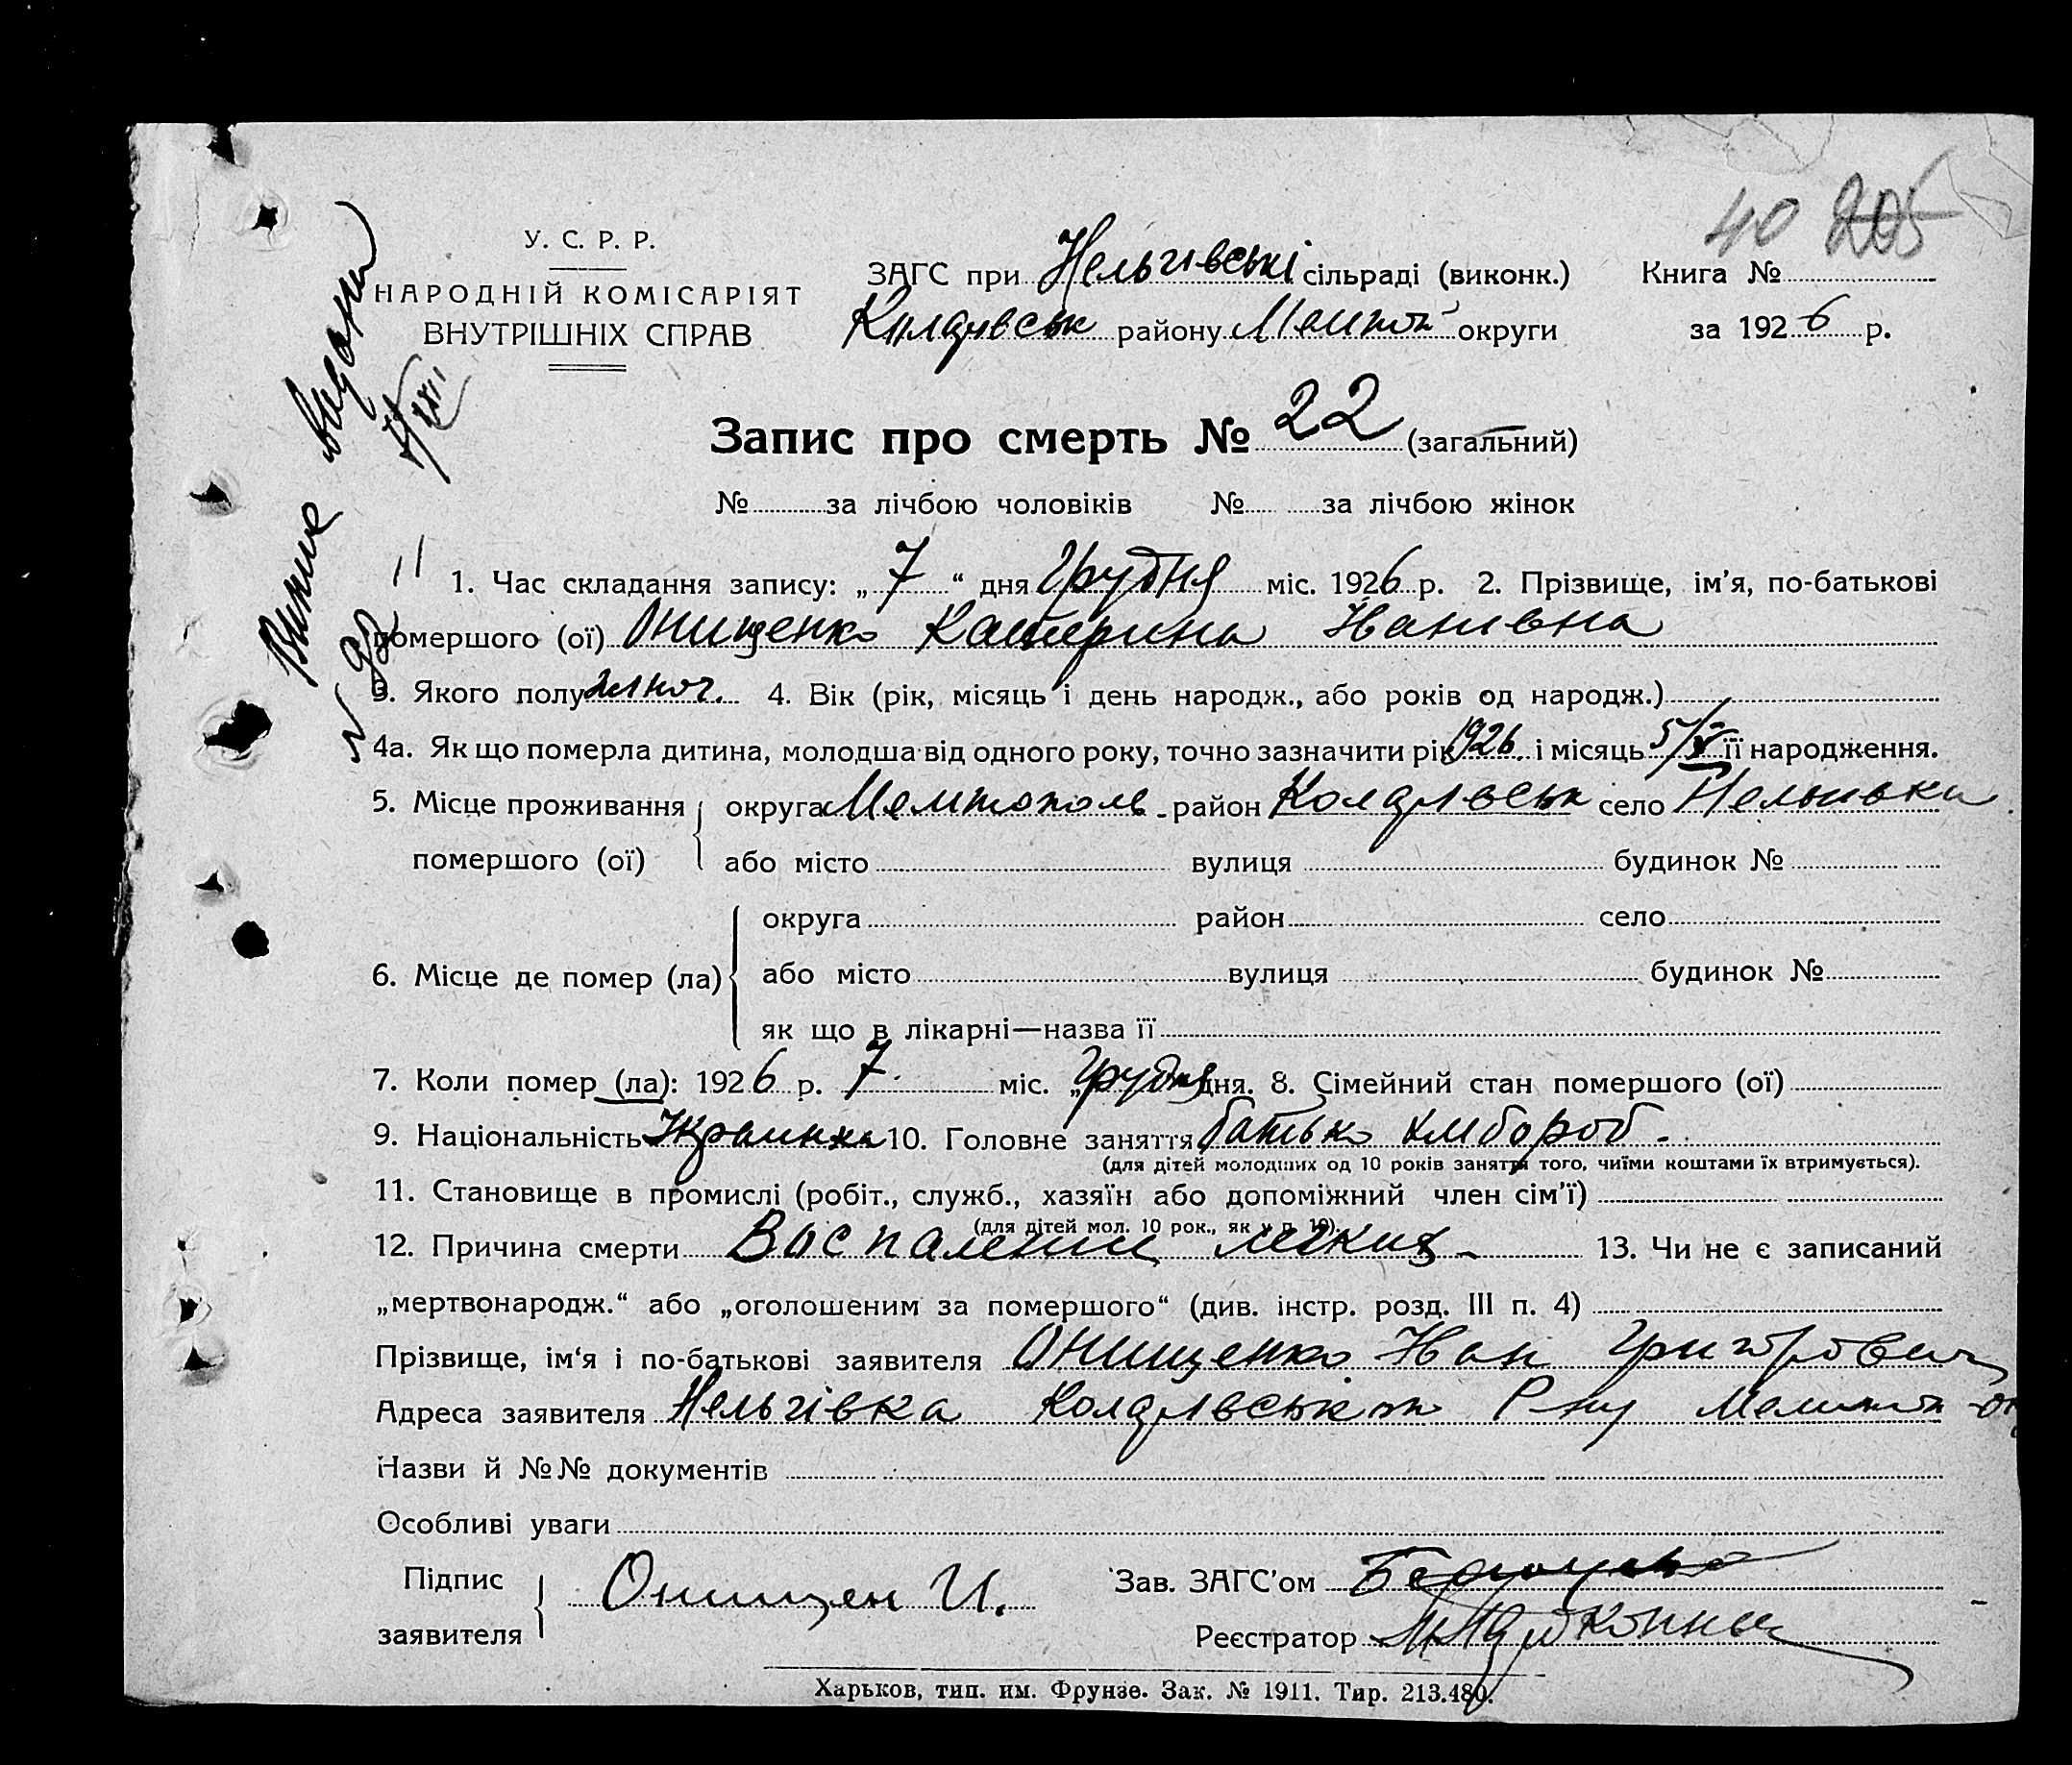 40 205
У. С. Р. Р.
НАРОДНІЙ КОМІСАРІЯТ
ВНУТРІШНІХ СПРАВ
ЗАГС при Нельгівські сільраді (виконк.) Книга №
району округи за 1926 р.
Запис про смерть № 22 (загальний)
№ за лічбою чоловіків № за лічбою жінок
1. Час складання запису: „7“ дня Грудня міс. 1926 р. 2. Прізвище, ім'я, по-батькові
помершого (ої) Онищенко Катерина Іванівна
3. Якого полу жіноч. 4. Вік (рік, місяць і день народж., або років од народж.)
4а. Як що померла дитина, молодша від одного року, точно зазначити рік 1926 і місяць 5/X її народження.
5. Місце проживання округа район село Нельгівка
помершого (ої) або місто вулиця будинок №
округа район село
6. Місце де помер (ла) або місто вулиця будинок №
як що в лікарні—назва її
7. Коли помер (ла): 1926 р. 7 міс. „Грудня дня. 8. Сімейний стан помершого (ої)
9. Національність Украинка 10. Головне заняття батько хлібороб.
(для дітей молодших од 10 років заняття того, чиїми коштами їх втримується).
11. Становище в промислі (робіт., служб., хазяїн або допоміжний член сім'ї)
(для дітей мол. 10 рок., як у п. 10).
12. Причина смерти Воспаление легких 13. Чи не є записаний
„мертвонародж.“ або „оголошеним за помершого“ (див. інстр. розд. III п. 4)
Прізвище, ім'я і по-батькові заявителя Онищенко Іван Григорович
Адреса заявителя Нельгівка Р-ну
Назви й №№ документів
Особливі уваги
Підпис
заявителя
Онищен И.
Зав. ЗАГС'ом
Реєстратор
Харьков, тип. им. Фрунзе. Зак. № 1911. Тир. 213.480.